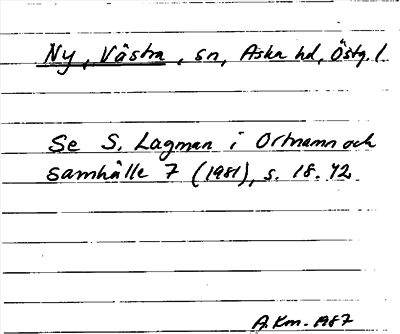 Ny, Västra, sn, Aska hd, Östg. l.
Se S. Lagman i Ortnamn och
samhälle 7 (1981), s. 18. 42
A.Km. 1987